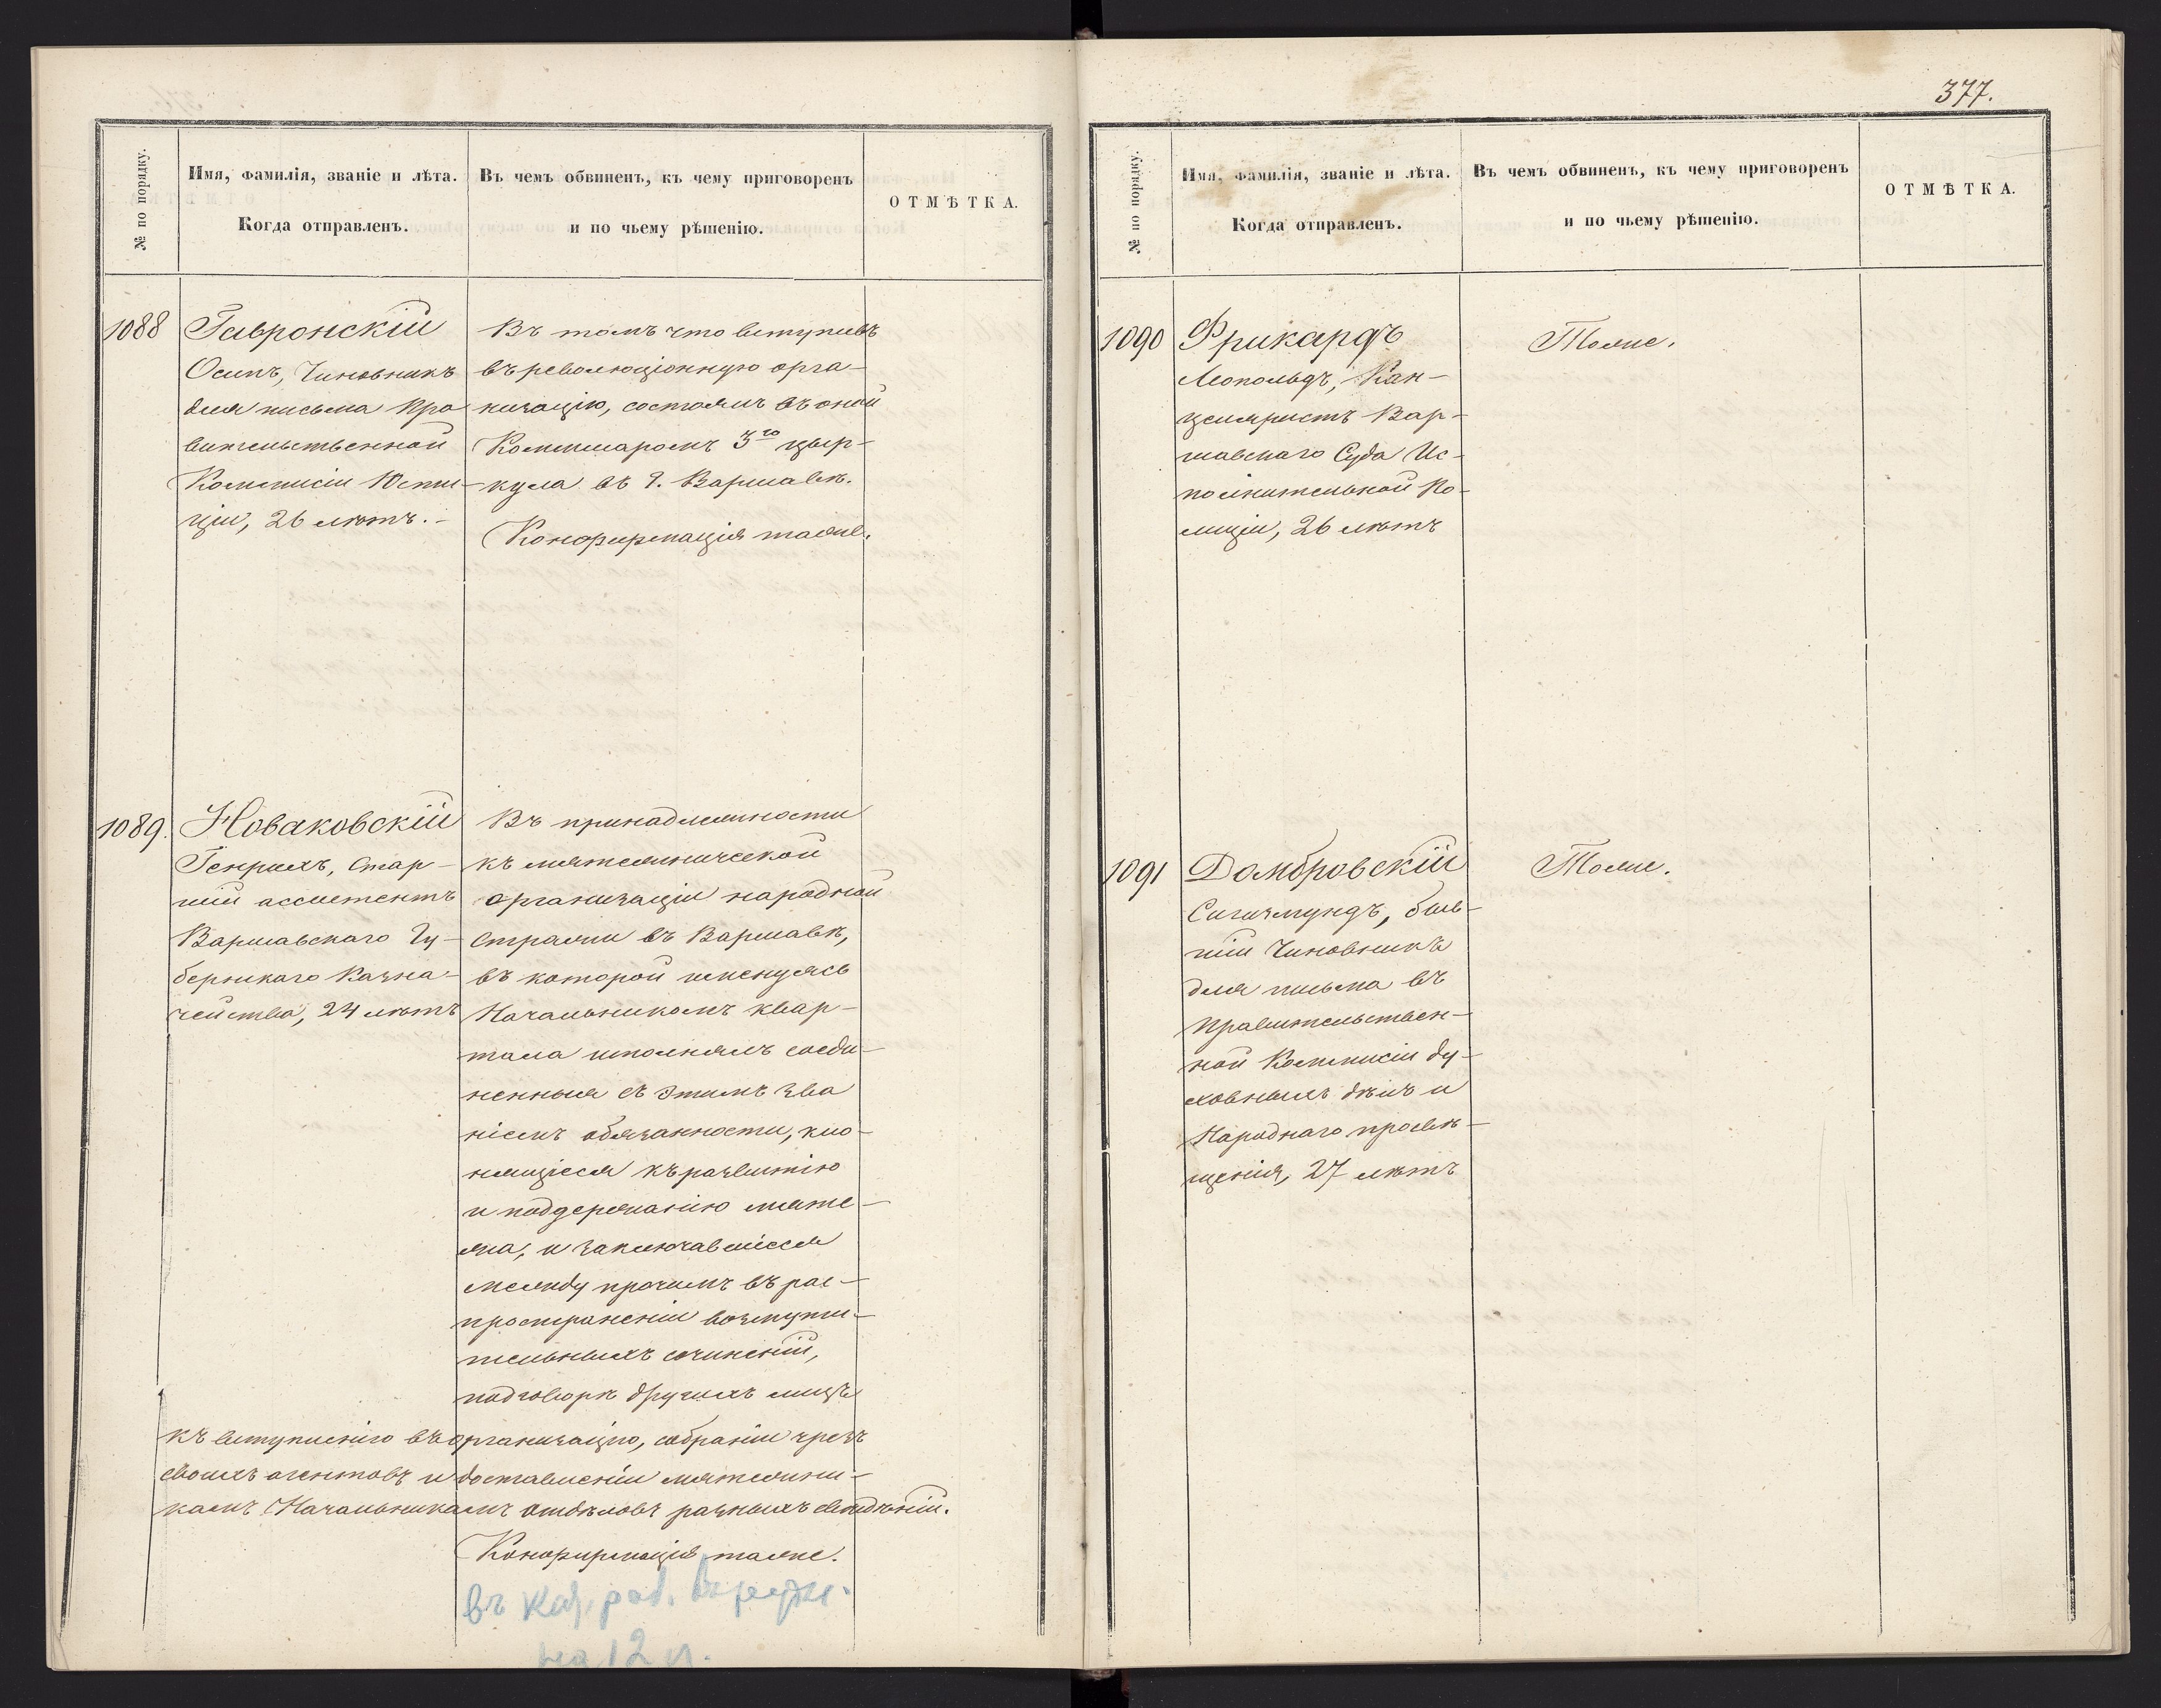 № по порядку.
Имя, фамилія, званіе и лѣта.
Когда отправленъ.
Въ чемъ обвиненъ, къ чему приговоренъ
и по чьему рѣшенію.
ОТМѢТКА.
1088
Гавронскій
Осипъ, Чиновникъ
для письма Пра
вительственной
Коммисіи Юсти-
ціи, 26 лѣтъ.-
Въ томъ что вступивъ
въ революціонную орга-
низацію, состоялъ въ оной
Коммисаромъ 3го цыр-
кула въ г. Варшавѣ.
Конфирмація таже.
1089.
Новаковскій
Генрихъ, Стар-
шій ассистентъ
Варшавскаго Гу-
бернскаго Казна-
чейства, 24 лѣтъ
Въ принадлежности
къ мятежнической
организаціи народной
стражи въ Варшавѣ,
въ которой именуясь
Начальникомъ квар-
тала исполнялъ соеди-
ненныя съ этимъ зва
ніемъ обязанности, кло-
нящіеся къ развитію
и поддержанію мяте-
жа, и заключавшіеся
между прочимъ въ рас-
пространеніи возмути-
тельныхъ сочиненій,
подговорѣ другихъ лицъ
къ вступленію въ организацію, собраніи чрезъ
своихъ агентовъ и доставленіи мятежни-
камъ Начальникамъ отдѣловъ разныхъ свѣдѣній.
Конфирмація таже.
въ кат. раб.
на 12 л.
377.
№ по порядку.
Имя, фамилія, званіе и лѣта.
Когда отправленъ.
Въ чемъ обвиненъ, къ чему приговоренъ
и по чьему рѣшенію.
ОТМѢТКА.
1090
Фрикардъ
Леопольдъ, Кан-
целяристъ Вар-
шавскаго Суда Ис-
полнительной По-
лиціи, 26 лѣтъ
Тоже.
1091
Домбровскій
Сигизмундъ, быв-
шій Чиновникъ
для письма въ
Правительствен-
ной Коммисіи ду-
ховныхъ дѣлъ и
Народнаго просвѣ-
щенія, 27 лѣтъ
Тоже.